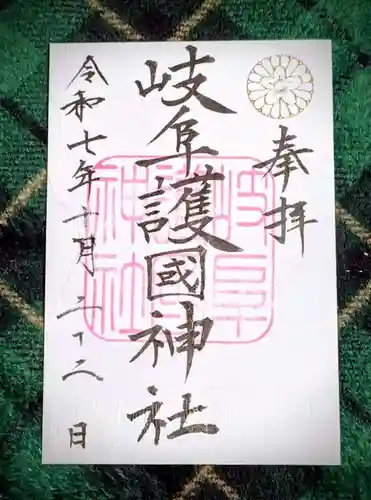 奉拝
岐阜護國神社
令和七年十月二十二日
岐阜
護國
神社